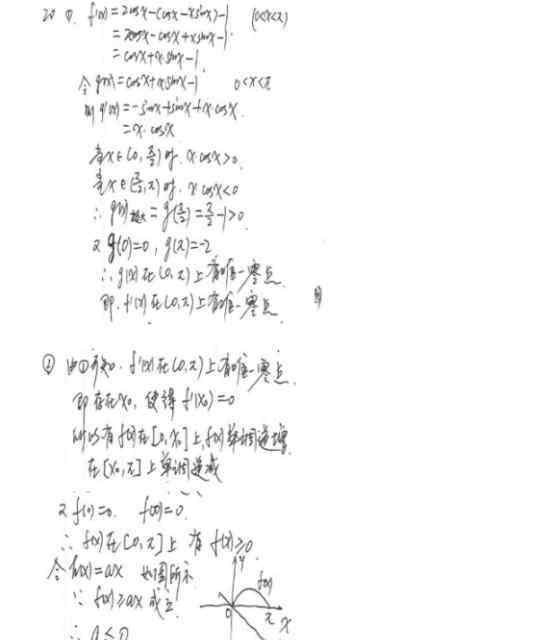 20 ①. f'(x)=2cosx-(cosx-x sinx)-1 (0<x<π)
=2cosx-cosx+x sinx-1
=cosx+x sinx-1.
令 g(x)=cosx+x sinx-1 0<x<π
则 g'(x)=-sinx+sinx+x·cosx.
=x·cosx
当x∈(0,π/2)时. x cosx>0.
当x∈(π/2,π)时. x cosx<0
∴ g(x)极大=g(π/2)=π/2-1>0.
又 g(0)=0, g(π)=-2
∴ g(x)在(0,π)上有唯一零点.
即. f'(x)在(0,π)上有唯一零点.
② 由①可知. f'(x)在(0,π)上有唯一零点.
即存在x₀, 使得 f'(x₀)=0
所以有f(x)在[0,x₀]上,f(x)单调递增.
在[x₀,π]上单调递减
又 f(0)=0. f(π)=0.
∴ f(x)在[0,π]上 有 f(x)≥0
令 h(x)=ax 如图所示
∵ f(x)≥ax 成立.
y f(x) 0 π x
∴ a≤0